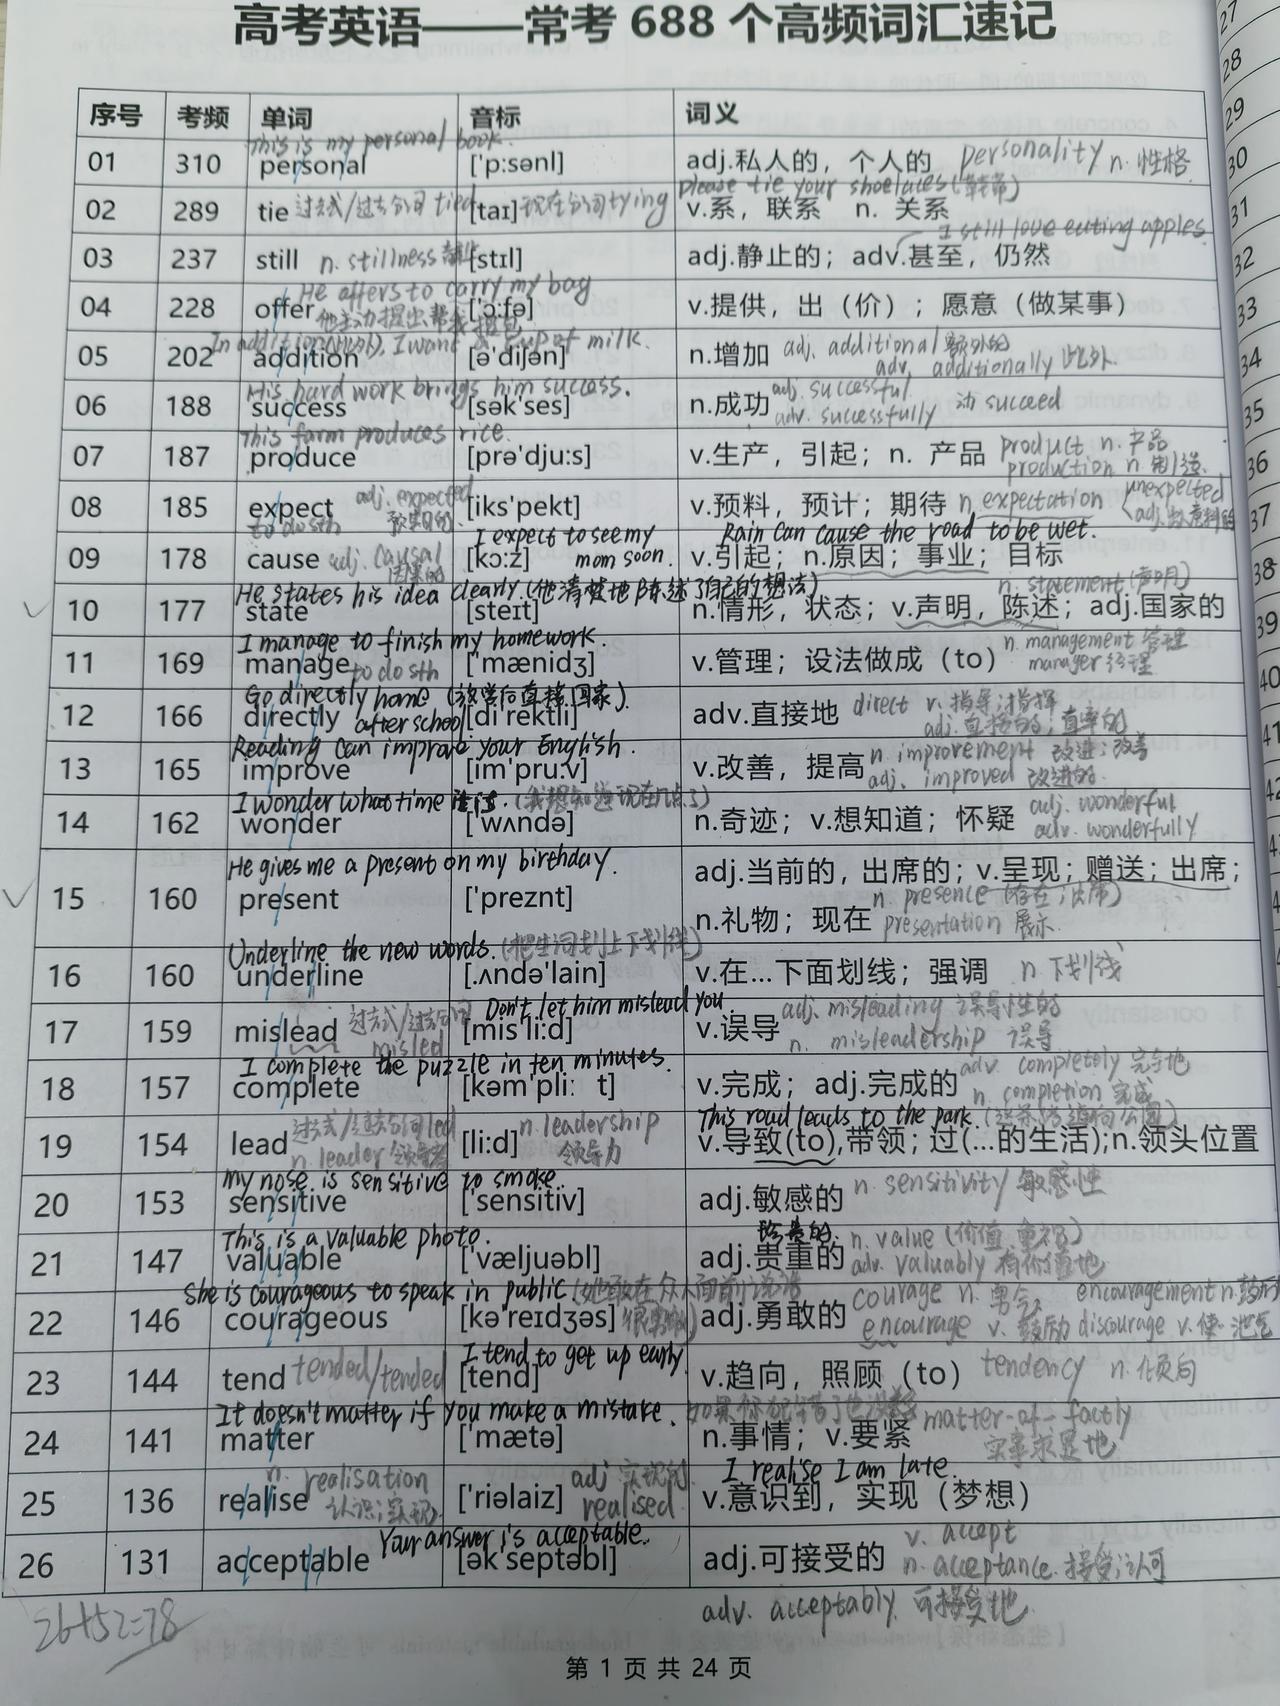 高考英语——常考 688 个高频词汇速记
序号 考频 单词 音标 词义
This is my personal book.
01 310 personal ['p:sənl] adj.私人的，个人的 personality n. 性格
please tie your shoelaces (鞋带)
02 289 tie 过去式/过去分词 tied [taɪ] 现在分词 tying v.系，联系 n. 关系
I still love eating apples.
03 237 still n. stillness [stɪl] adj.静止的；adv.甚至，仍然
He offers to carry my bag
04 228 offer ['ɔ:fə] v.提供，出（价）；愿意（做某事）
他主动提出帮我提包
In addition(此外), I want a cup of milk.
05 202 addition [ə'diʃən] n.增加 adj. additional 额外的
adv. additionally 此外.
His hard work brings him success.
06 188 success [sək'ses] n.成功 adj. successful
adv. successfully 动 succeed
This farm produces rice.
07 187 produce [prə'dju:s] v.生产，引起；n. 产品 product n. 产品
production n. 制造
08 185 expect adj. expected 预期的 [iks'pekt] v.预料，预计；期待 n. expectation unexpected
to do sth adj. 出意料的
I expect to see my mom soon. Rain can cause the road to be wet.
09 178 cause adj. causal 因果的 [kɔ:z] v.引起；n.原因；事业；目标
He states his idea clearly.(他清楚地陈述了自己的想法) n. statement (声明)
10 177 state [steɪt] n.情形，状态；v.声明，陈述；adj.国家的
I manage to finish my homework.
11 169 manage to do sth ['mænidʒ] v.管理；设法做成（to） n. management 管理
manager 经理
Go directly home (放学后直接回家).
12 166 directly after school [di'rektli] adv.直接地 direct v. 指导；指挥
adj. 直接的；直率的
Reading can improve your English.
13 165 improve [im'pru:v] v.改善，提高 n. improvement 改进；改善
adj. improved 改进的
I wonder what time it is. (我想知道现在几点了)
14 162 wonder ['wʌndə] n.奇迹；v.想知道；怀疑 adj. wonderful
adv. wonderfully
He gives me a present on my birthday.
15 160 present ['preznt] adj.当前的，出席的；v.呈现；赠送；出席；
n.礼物；现在 n. presence (存在；出席)
presentation 展示
Underline the new words. (把生词划上下划线)
16 160 underline [.ʌndə'lain] v.在...下面划线；强调 n. 下划线
Don't let him mislead you.
17 159 mislead 过去式/过去分词 misled [mis'li:d] v.误导 adj. misleading 误导性的
n. misleadership 误导
I complete the puzzle in ten minutes.
18 157 complete [kəm'pli: t] v.完成；adj.完成的 adv. completely 完全地
n. completion 完成
This road leads to the park. (这条路通向公园)
19 154 lead 过去式/过去分词 led [li:d] n. leadership 领导力 v.导致(to),带领；过(...的生活);n.领头位置
n. leader 领导者
My nose is sensitive to smoke.
20 153 sensitive ['sensitiv] adj.敏感的 n. sensitivity 敏感性
This is a valuable photo. 珍贵的.
21 147 valuable ['væljuəbl] adj.贵重的 n. value (价值 重视)
adv. valuably 有价值地
She is courageous to speak in public (她敢在众人面前说话 很勇敢)
22 146 courageous [kə'reɪdʒəs] adj.勇敢的 courage n. 勇气 encouragement n. 鼓励
encourage v. 鼓励 discourage v. 使 泄气
I tend to get up early.
23 144 tend tended/tended [tend] v.趋向，照顾（to） tendency n. 倾向
It doesn't matter if you make a mistake. 如果你犯错了也没事
24 141 matter ['mætə] n.事情；v.要紧 matter-of-factly
实事求是地
I realise I am late.
25 136 realise n. realisation 认识；实现 ['riəlaiz] adj 实现的 realised v.意识到，实现（梦想）
Your answer is acceptable.
26 131 acceptable [ək'septəbl] adj.可接受的 v. accept
n. acceptance 接受；认可
adv. acceptably 可接受地
26+52=78
第 1 页 共 24 页
27
28
29
30
31
32
33
34
35
36
37
38
39
40
41